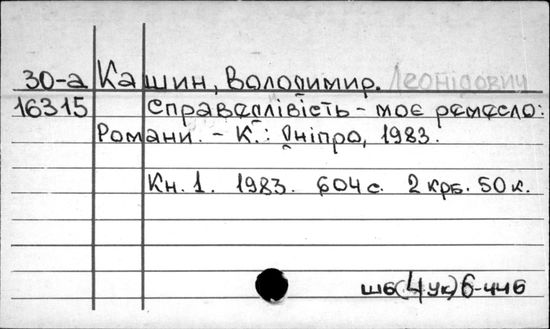 30-а Кашин, Володимир. Леонідович
16315 Справедлівість - моє ремесло:
Романи. - К.: Дніпро, 1983.
Кн. 1. 1983. 604 с. 2 крб. 50 к.
шб(4Ук)6-446